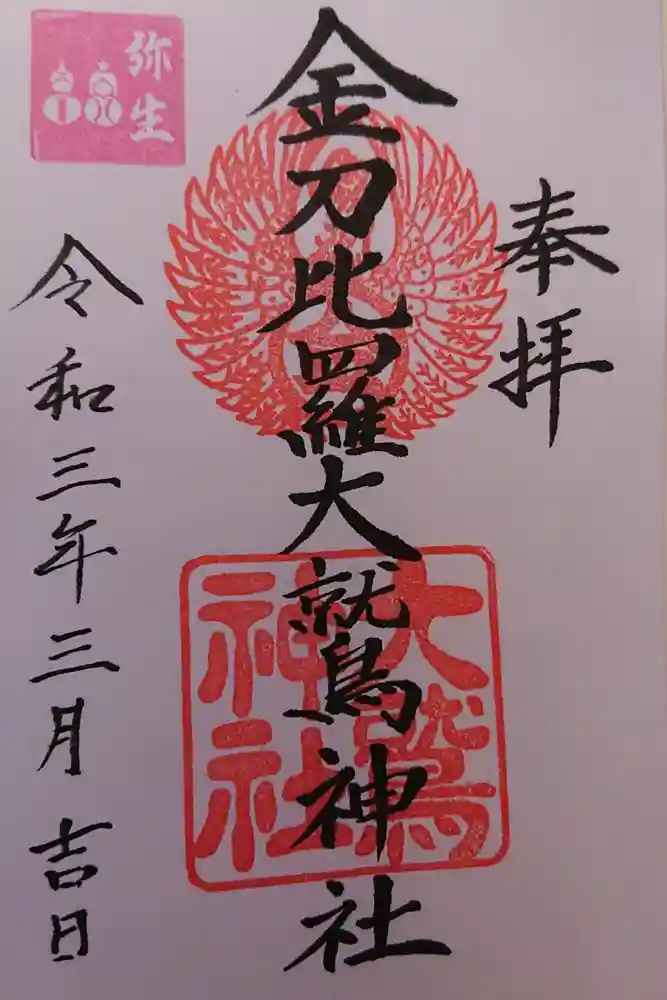 奉拝
金刀比羅大鷲神社
大鷲神社
令和三年三月吉日
弥生